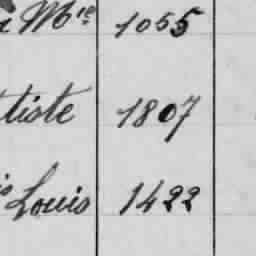 Mie 1055
tiste 1807
Louis 1422